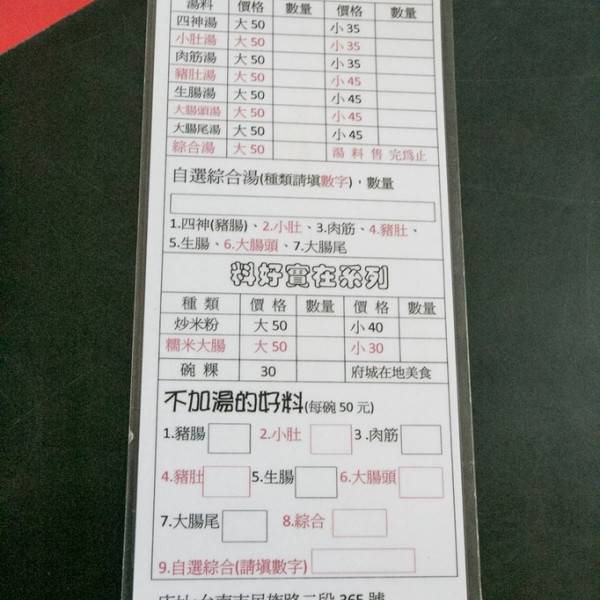 湯料 價格 數量 價格 數量
四神湯 大50 小35
小肚湯 大50 小35
肉筋湯 大50 小35
豬肚湯 大50 小45
生腸湯 大50 小45
大腸頭湯 大50 小45
大腸尾湯 大50 小45
綜合湯 大50 湯 料 售 完為止
自選綜合湯(種類請填數字)，數量
1.四神(豬腸)、2.小肚、3.肉筋、4.豬肚、
5.生腸、6.大腸頭、7.大腸尾
料好實在系列
種 類 價 格 數量 價 格 數量
炒米粉 大50 小40
糯米大腸 大50 小30
碗 粿 30 府城在地美食
不加湯的好料(每碗 50 元)
1.豬腸 2.小肚 3.肉筋
4.豬肚 5.生腸 6.大腸頭
7.大腸尾 8.綜合
9.自選綜合(請填數字)
店址:台南市民族路二段 365 號